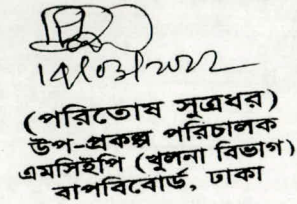 (পরিতোষ সুত্রধর)
উপ-প্রকল্প পরিচালক
এমসিইপি (খুলনা বিভাগ)
বাপবিবোর্ড, ঢাকা